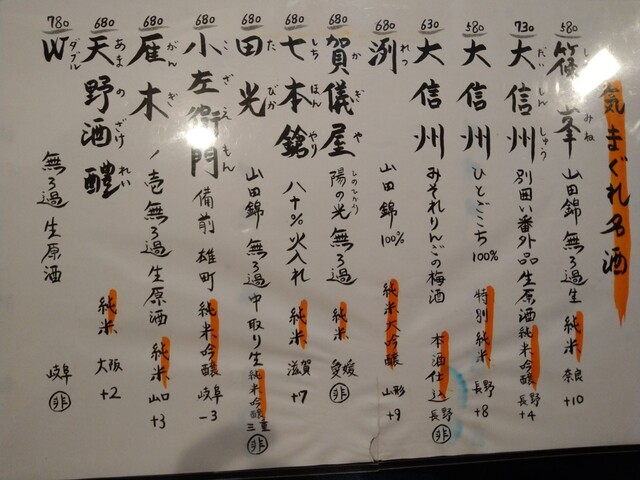 気まぐれ名酒
580 篠峯 みね 山田錦 無ろ過生 純米 奈良 +10
730 大信州 だいしんしゅう 別囲い番外品 生原酒 純米吟醸 長野 +4
580 大信州 ひとごこち 100% 特別純米 長野 +8
630 大信州 みぞれりんごの梅酒 本酒仕込 長野 非
680 洌 れつ 山田錦 100% 純米大吟醸 山形 +9
680 賀儀屋 かぎや 陽の光 しのひかり 無ろ過 純米 愛媛
680 七本鎗 しちほんやり 八十% 火入れ 純米 滋賀 +7
680 田光 たびか 山田錦 無ろ過 中取り生 純米吟醸 三重 非
680 小左衛門 こざえもん 備前 雄町 純米吟醸 岐阜 -3
680 雁木 がんぎ ノ壱 無ろ過 生原酒 純米 山口 +3
680 天野酒 醴 あまのざけ れい 純米 大阪 +2
780 W ダブル 無ろ過 生原酒 岐阜 非